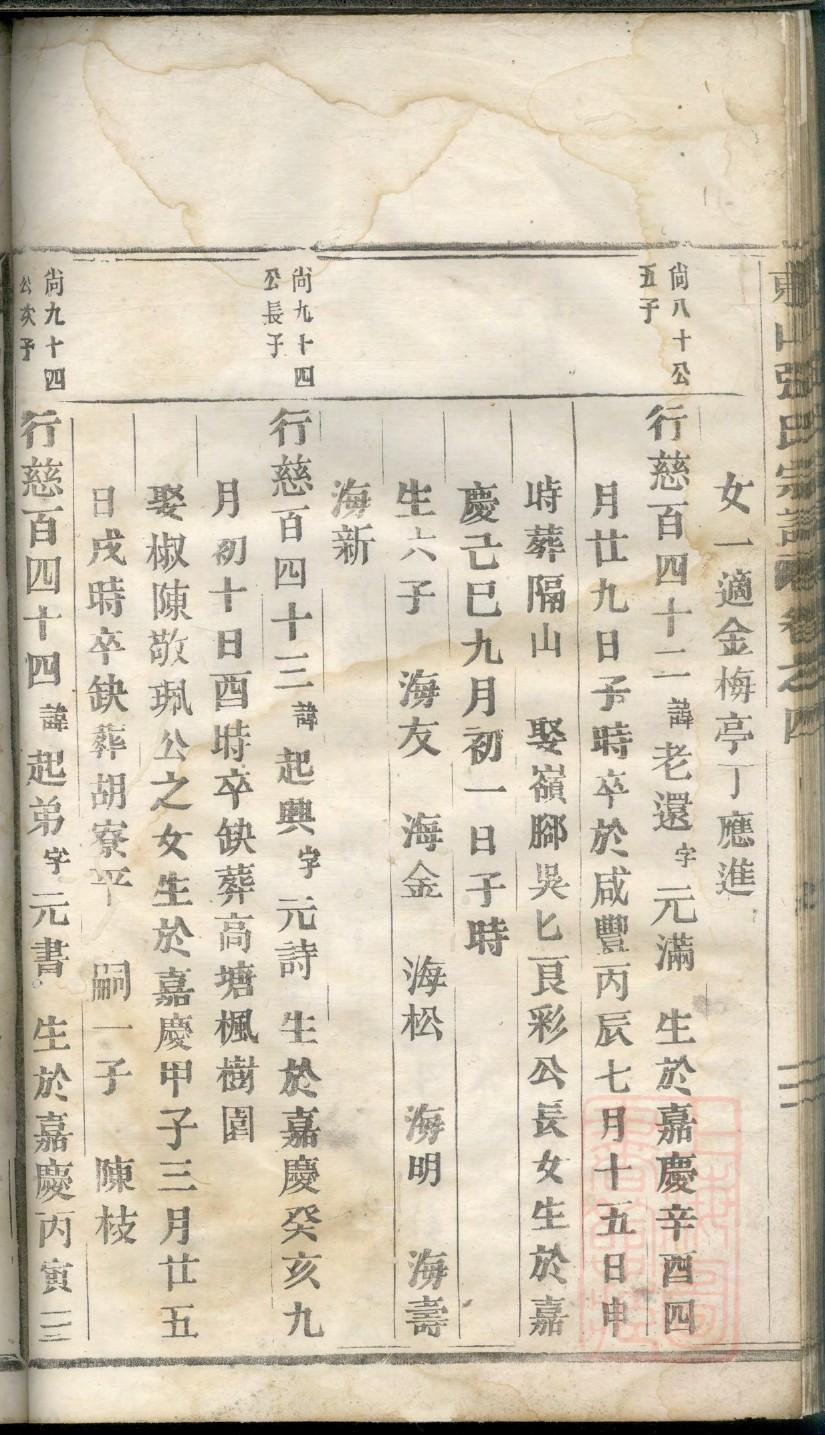 東山張氏宗譜卷之四
女一適金梅亭丁應進
尙八十公
五子
行慈百四十二諱老還字元滿 生於嘉慶辛酉四
月廿九日子時卒於咸豐丙辰七月十五日申
時葬隔山 娶嶺腳吳匕良彩公長女生於嘉
慶己巳九月初一日子時
生六子 海友 海金 海松 海明 海壽
海新
尙九十四
公長子
行慈百四十三諱起興字元詩 生於嘉慶癸亥九
月初十日酉時卒缺葬高塘楓樹園
娶椒陳敬珮公之女生於嘉慶甲子三月廿五
日戌時卒缺葬胡寮平 嗣一子 陳枝
尙九十四
公次子
行慈百四十四諱起弟字元書 生於嘉慶丙寅二